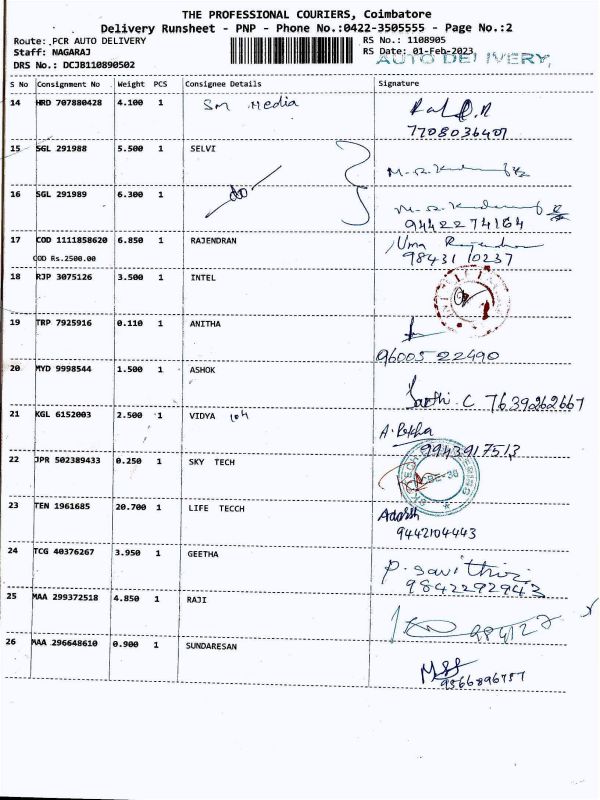 THE PROFESSIONAL COURIERS, Coimbatore
Delivery Runsheet - PNP - Phone No.:0422-3505555 - Page No.:2
Route: PCR AUTO DELIVERY RS No.: 1108905
Staff: NAGARAJ RS Date: 01-Feb-2023
AUTO DELIVERY,
DRS No.: DCJB110890502
S No Consignment No Weight PCS Consignee Details Signature
14 HRD 707880428 4.100 1 Sm Media
7708036401
15 SGL 291988 5.500 1 SELVI
16 SGL 291989 6.300 1 do
9442274164
17 COD 1111858620 6.850 1 RAJENDRAN Uma Rajendran
COD Rs.2500.00 98431 10237
18 RJP 3075126 3.500 1 INTEL
19 TRP 7925916 0.110 1 ANITHA
96005 22490
20 MYD 9998544 1.500 1 ASHOK
Sarthi. C 7639262667
21 KGL 6152003 2.500 1 VIDYA 104
A. Rekha
9943917513
22 JPR 502389433 0.250 1 SKY TECH
CBE-36
23 TEN 1961685 20.700 1 LIFE TECCH
Adarsh
9442104443
24 TCG 40376267 3.950 1 GEETHA
P. Savithiri
9842292943
25 MAA 299372518 4.850 1 RAJI
26 MAA 296648610 0.900 1 SUNDARESAN
9566896757